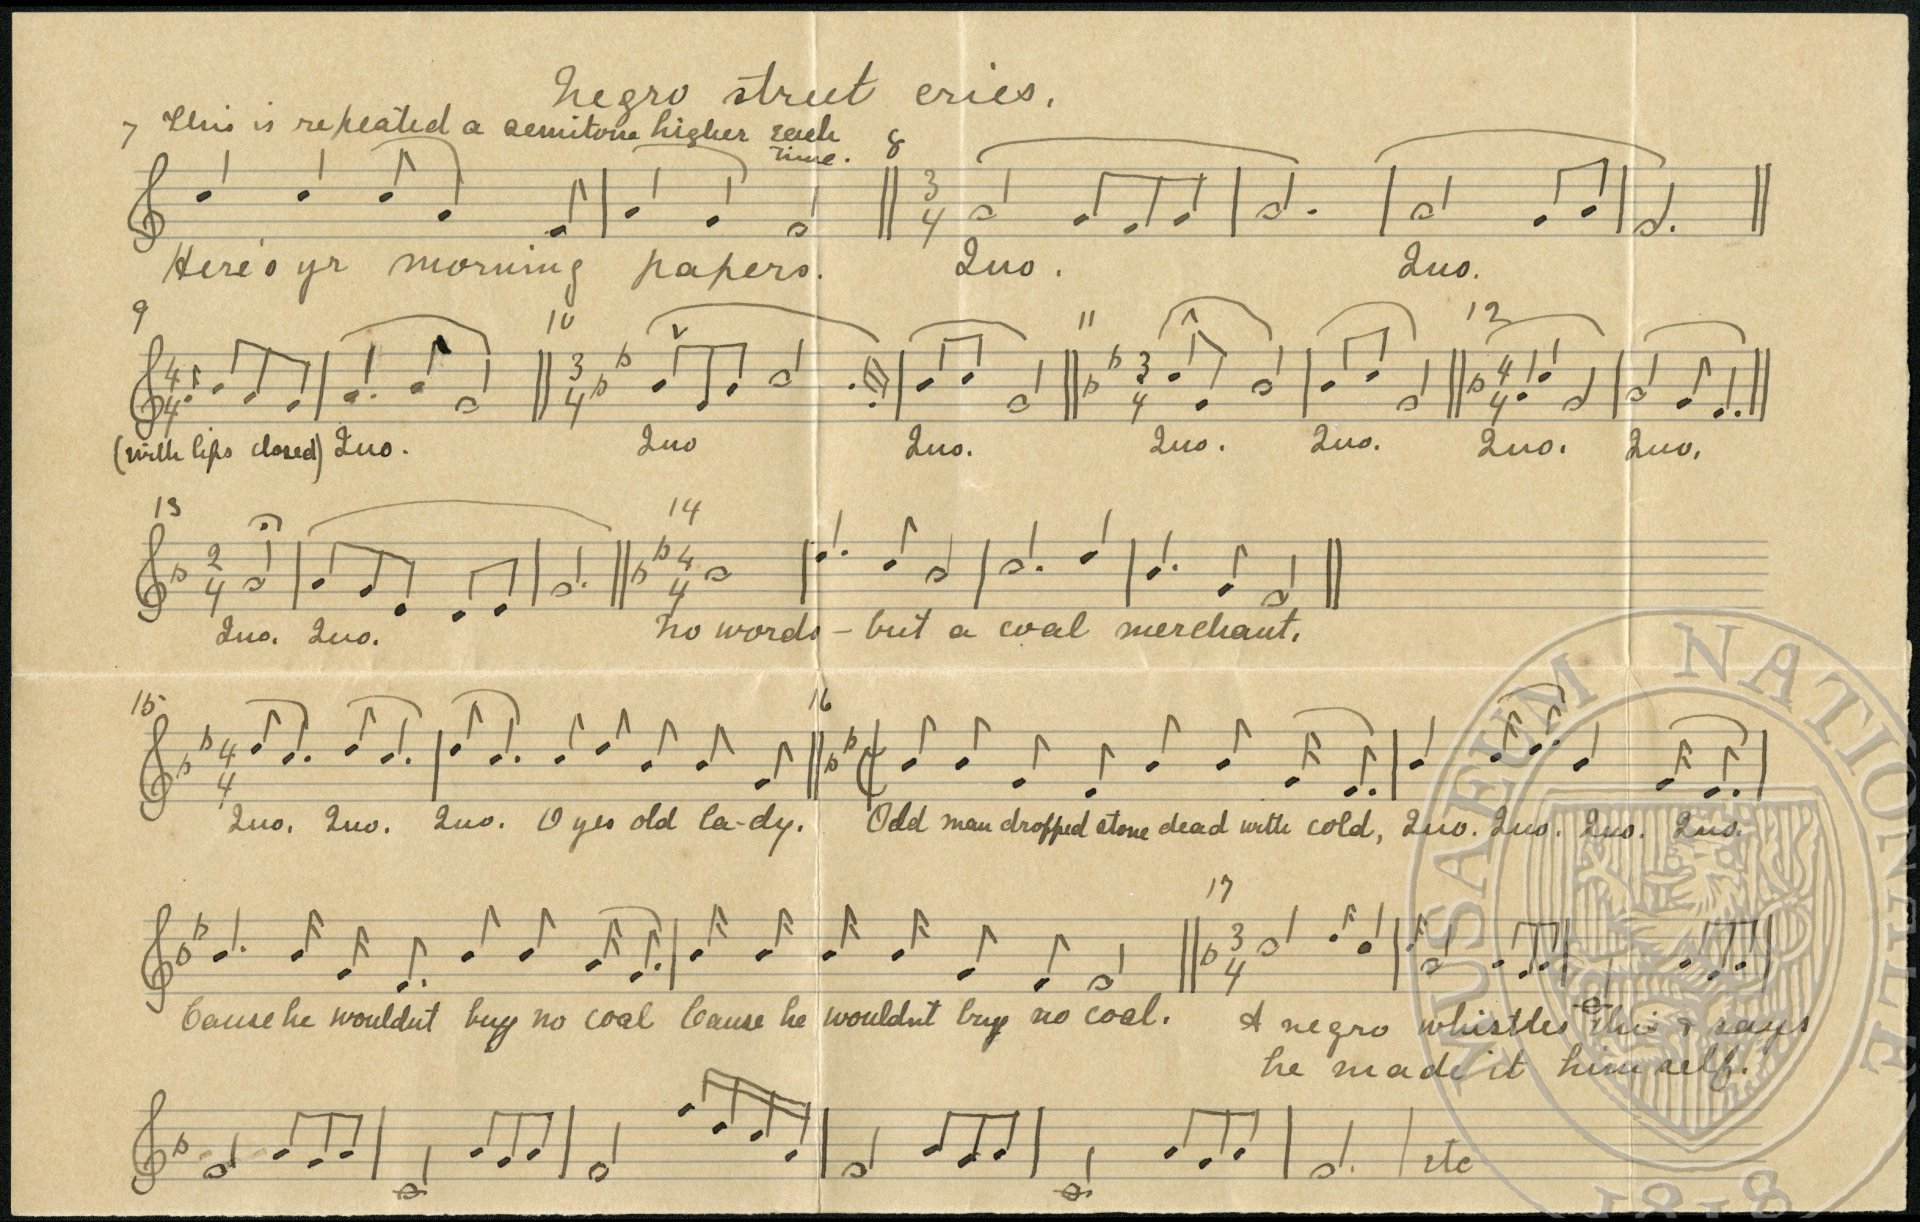 Negro street cries.
7 This is repeated a semitone higher each
time. 8
3
4
Here's yr morning papers. Quo. Quo.
9 10 11 12
4 3 3 4
4 4 4 4
(with lips closed) Quo. Quo Quo. Quo. Quo. Quo. Quo.
13 14
2 4
4 4
Quo. Quo. No words – but a coal merchant.
15 16
4
4
Quo. Quo. Quo. O yes old la-dy. Odd man dropped stone dead with cold, Quo. Quo. Quo. Quo.
17
3
4
Cause he wouldnt buy no coal Cause he wouldnt buy no coal. A negro whistles this & says
he made it himself.
etc
MUSAEUM NATIONALE
1818